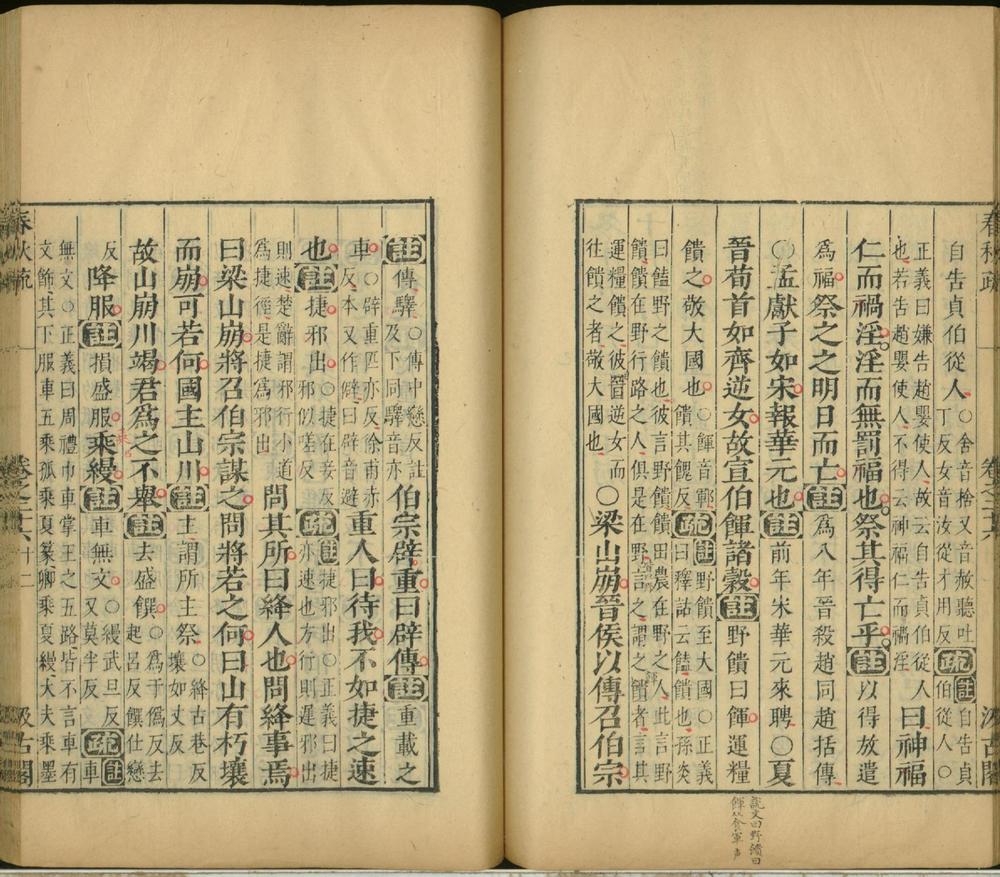 春秋疏
卷之二十六
汲古閣
自告貞伯從人○舍音捨又音赦聽吐
丁反女音汝從才用反疏註自告貞
伯從人○
正義曰嫌告趙嬰使人故云自告貞伯從人
也若告趙嬰使人不得云神福仁而禍淫
曰神福
仁而禍淫淫而無罰福也祭其得亡乎註以得放遣
爲福祭之之明日而亡註爲八年晉殺趙同趙括傳
○孟獻子如宋報華元也註前年宋華元來聘○夏
晉荀首如齊逆女故宣伯餫諸穀註野饋曰餫運糧
饋之敬大國也○餫音鄆
饋其媿反疏註野饋至大國○正義
曰釋詁云饁饋也孫炎
曰饁野之饋也彼言野饋饋田農在野之人此言野
饋饋在野行路之人俱是在野言之謂之饋者言其
運糧饋之彼晉逆女而
往饋之者敬大國也
○梁山崩晉侯以傳召伯宗
說文曰野饋曰
餫从食軍声
註傳驛○傳中戀反註
及下同驛音亦
伯宗辟重曰辟傳註重載之
車○辟重匹亦反徐甫赤
反本又作僻曰辟音避
重人曰待我不如捷之速
也註捷邪出○捷在妾反
邪似嗟反疏註捷邪出○正義曰捷
亦速也方行則遲邪出
則速楚辭謂邪行小道
爲捷徑是捷爲邪出
問其所曰絳人也問絳事焉
曰梁山崩將召伯宗謀之問將若之何曰山有朽壤
而崩可若何國主山川註主謂所主祭○絳古巷反
壤如丈反
故山崩川竭君爲之不舉註去盛饌○爲于僞反去
起呂反饌仕戀
反
降服註損盛服乘縵註車無文○縵武旦反
又莫半反疏註車
無文○正義曰周禮巾車掌王之五路皆不言車有
文飾其下服車五乘孤乘夏篆卿乘夏縵大夫乘墨
春秋疏
卷之二十六
十二
汲古閣